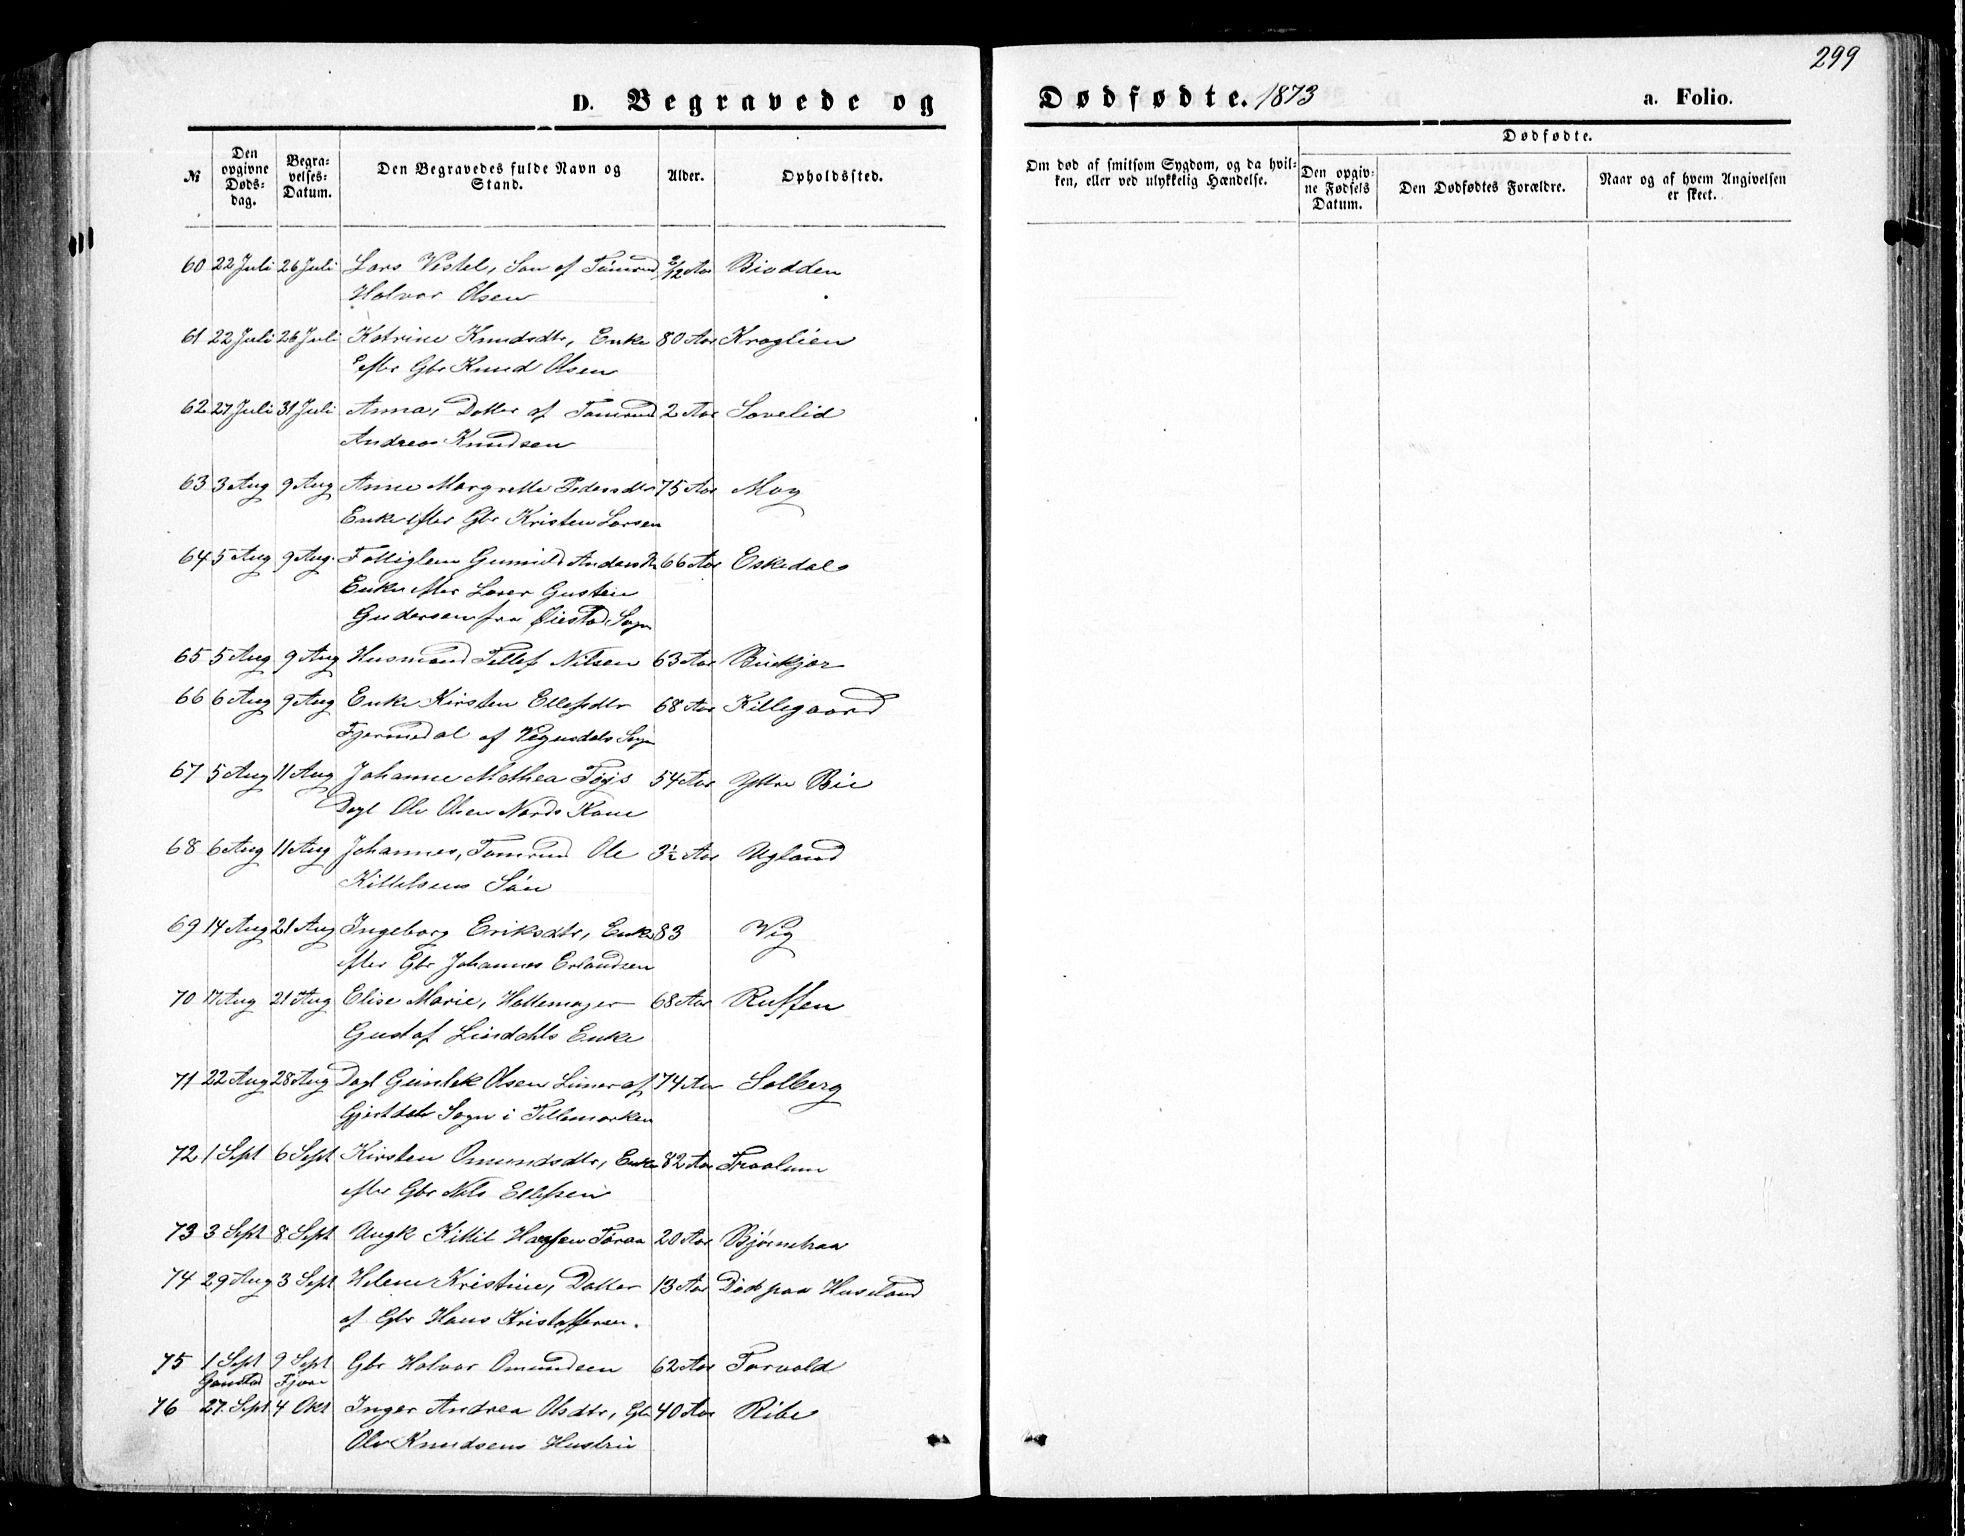 299
D. Begravede og Dødfødte. 1873 a. Folio.
№
Den opgivne Døds-dag.
Begra-velses-Datum.
Den Begravedes fulde Navn og Stand.
Alder.
Opholdssted.
Om død af smitsom Sygdom, og da hvil-
ken, eller ved ulykkelig Hændelse.
Dødfødte.
Den opgiv-ne Fødsels Datum.
Den Dødfødtes Forældre.
Naar og af hvem Angivelsen er skeet.
60 22 Juli 26 Juli Lars Vestel, Søn af Tømrmd Aar Biodden
Halvor Olsen
61 22 Juli 26 Juli Katrine Knudsdtr, Enke 80 Aar Kraglien
efter Gbr Knud Olsen
62 27 Juli 31 Juli Anna, Datter af Tømrmd 2 Aar Lovelid
Andreas Knudsen
63 3 Aug 9 Aug Anne Margrethe Pedersdtr 75 Aar Moy
Enke efter Gbr Kristen Larsen
64 5 Aug 9 Aug. Fattiglem Gunnild Andersdtr 66 Aar Eskedal
Enke efter Gustein
Gundersen fra Øiestad Sogn
65 5 Aug 9 Aug Husmand Tellef Nilsen 63 Aar Birkjær
66 6 Aug 9 Aug Enke Kirsten Ellefsdtr 68 Aar Killegaard
Fjermedal af Vegusdals Sogn
67 5 Aug 11 Aug Johanne Mathea Tøgs 54 Aar Yttre Bie
Dagl Ole Olsen Nords Kone
68 6 Aug 11 Aug Johannes, Tømrmd Ole 3½ Aar Ugland
Kittelsens Søn
69 14 Aug 21 Aug Ingeborg Eriksdtr, Enke 83 Vig
efter Gbr Johannes Erlandsen
70 17 Aug 21 Aug Elise Marie, Hattemager 68 Aar Ruffen
Gustaf Lindahls Enke
71 22 Aug 28 Aug Dagl Gunlek Olsen af 74 Aar Solberg
Gjestdals Sogn i Tellemarken
72 1 Sept 6 Sept Kirsten Omundsdtr, Enke 82 Aar Traalum
efter Gbr Nils Ellefsen
73 3 Sept 8 Sept Ungk Kittil Hansen Toraa 20 Aar Bjørnetraa
74 29 Aug 3 Sept Helene Kristine, Datter 13 Aar Død paa Huseland
af Gbr Hans Kristoffersen.
75 1 Sept 9 Sept Gbr Halvor Omundsen 62 Aar Torvold
Fjære
76 27 Sept 4 Okt Inger Andrea Olsdtr, Gbr 40 Aar Ribe
Ole Knudsens Hustru